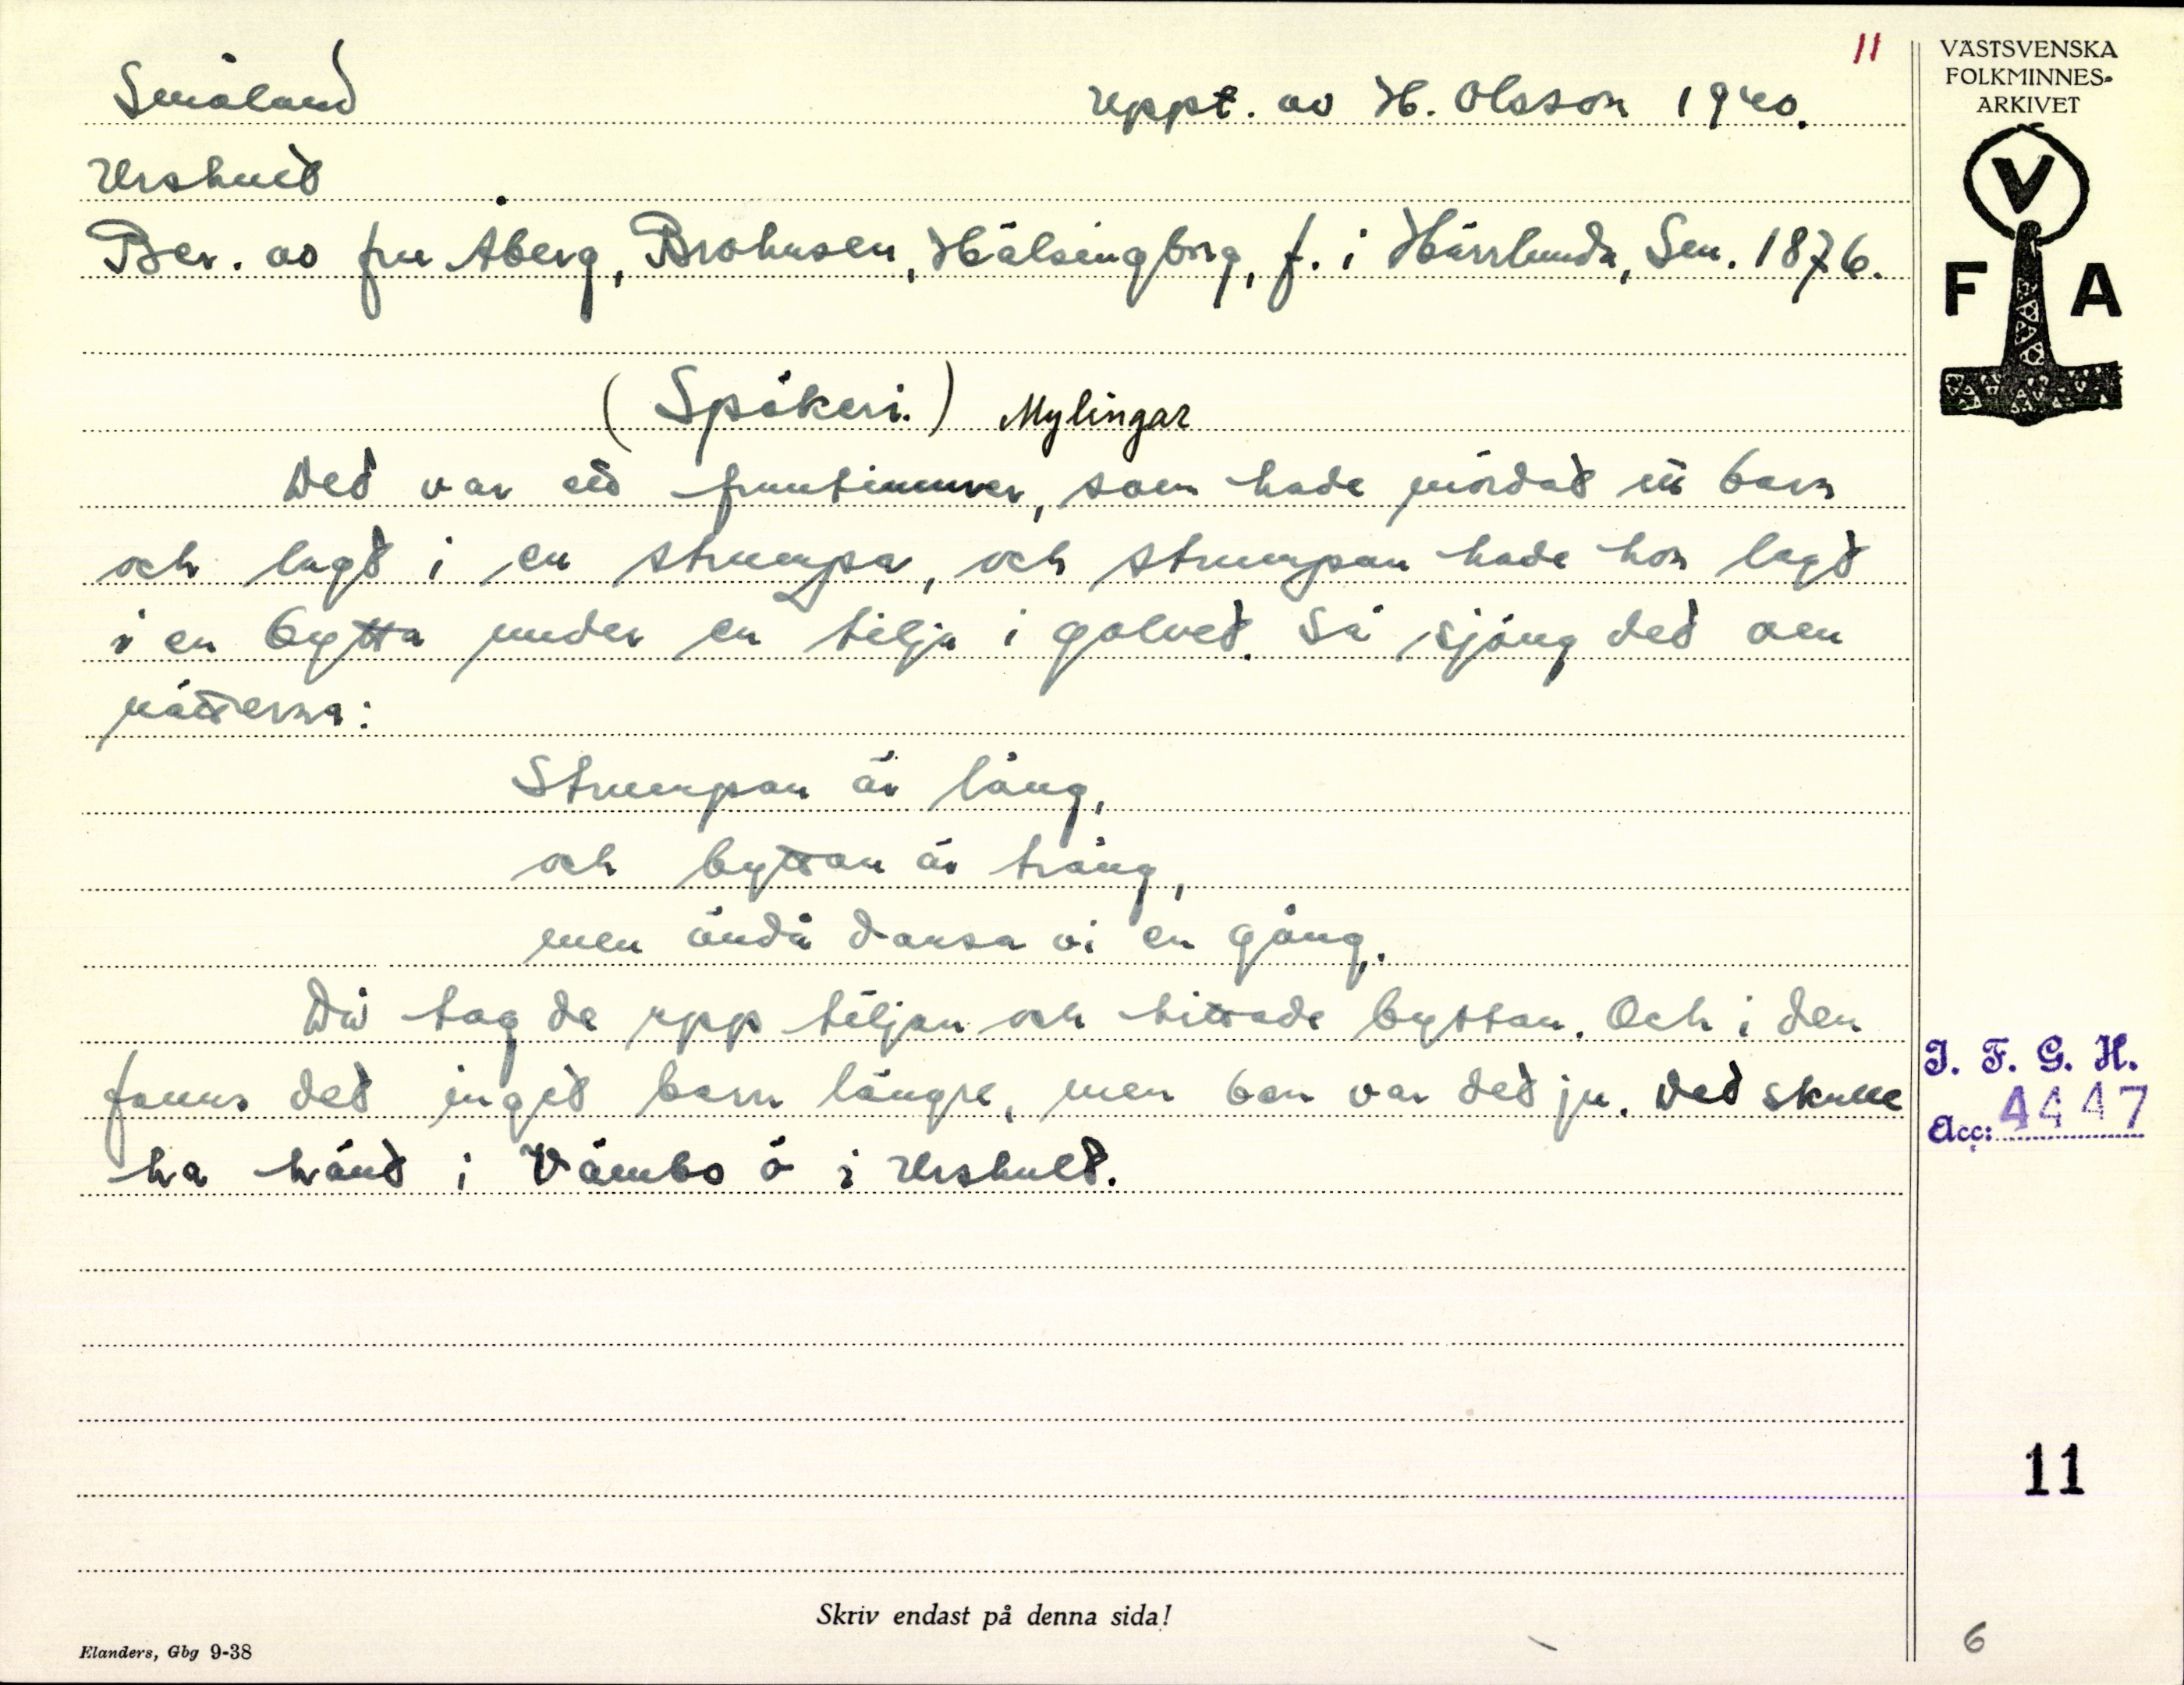 11
Småland
uppt. av H. Olsson 1940.
Urshult
Ber. av fru Åberg, Brohusen, Hälsingborg, f. i Härrlunda, Sm. 1876.
(Spökeri.) Mylingar
Det var ett fruntimmer, som hade mördat itt barn
och lagt i en strumpa, och strumpan hade hon lagt
i en bytta under en tilja i golvet. Så sjöng det om
nätterna:
Strumpan är lång,
och byttan är trång,
men ändå dansa vi en gång.
Då tog de upp tiljan och hittade byttan. Och i den
fanns det inget barn längre, men ben var det ju. Det skulle
ha hänt i Vämbo ö i Urshult.
VÄSTSVENSKA
FOLKMINNES-
ARKIVET
V
F A
I. F. G. H.
Acc: 4447
11
6
Skriv endast på denna sida!
Elanders, Gbg 9-38